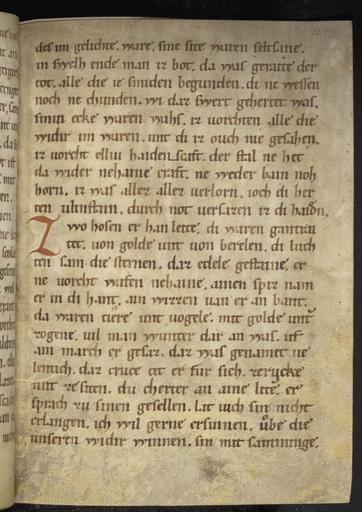 des im gelichte ware. sine site waren seltsane.
in swelh ende man iz bot. da was geraite der
tot. alle die ie sniden begunden. di ne wessen
noch ne chunden. wi daz swert gehertet was.
siniu ecke waren wahs. iz vorchten alle die
widir im waren. unt di iz ouch nie gesahen.
iz vorcht elliu haidenscaft. der stal ne het
da wider nehaine craft. ne weder bain noh
horn. iz was allez verlorn. ioch di her
ten vlinstain. durch not versazen iz di haiden.
Zwo hosen er han leite. di waren gantrai
tet. von golde unt von berelen. di luch
ten sam die sternen. daz edele gestaine. er
ne vorcht wafen nehaine. ainen spiz nam
er in di hant. ain wizzen van er an bant.
da waren tiere unt vogele. mit golde unter
zogene. uil man wunter dar an was. uf
ain march er gesaz. daz was genamet ue
lentich. daz cruce tet er fur sich. zerucke
nitt er siten. du cherter an aine lite. er
sprach zu sinen gesellen. lat iuch sin nicht
erlangen. ich wil gerne ersinnen. ube die
unseren widir winnen. sin mit samnunge.